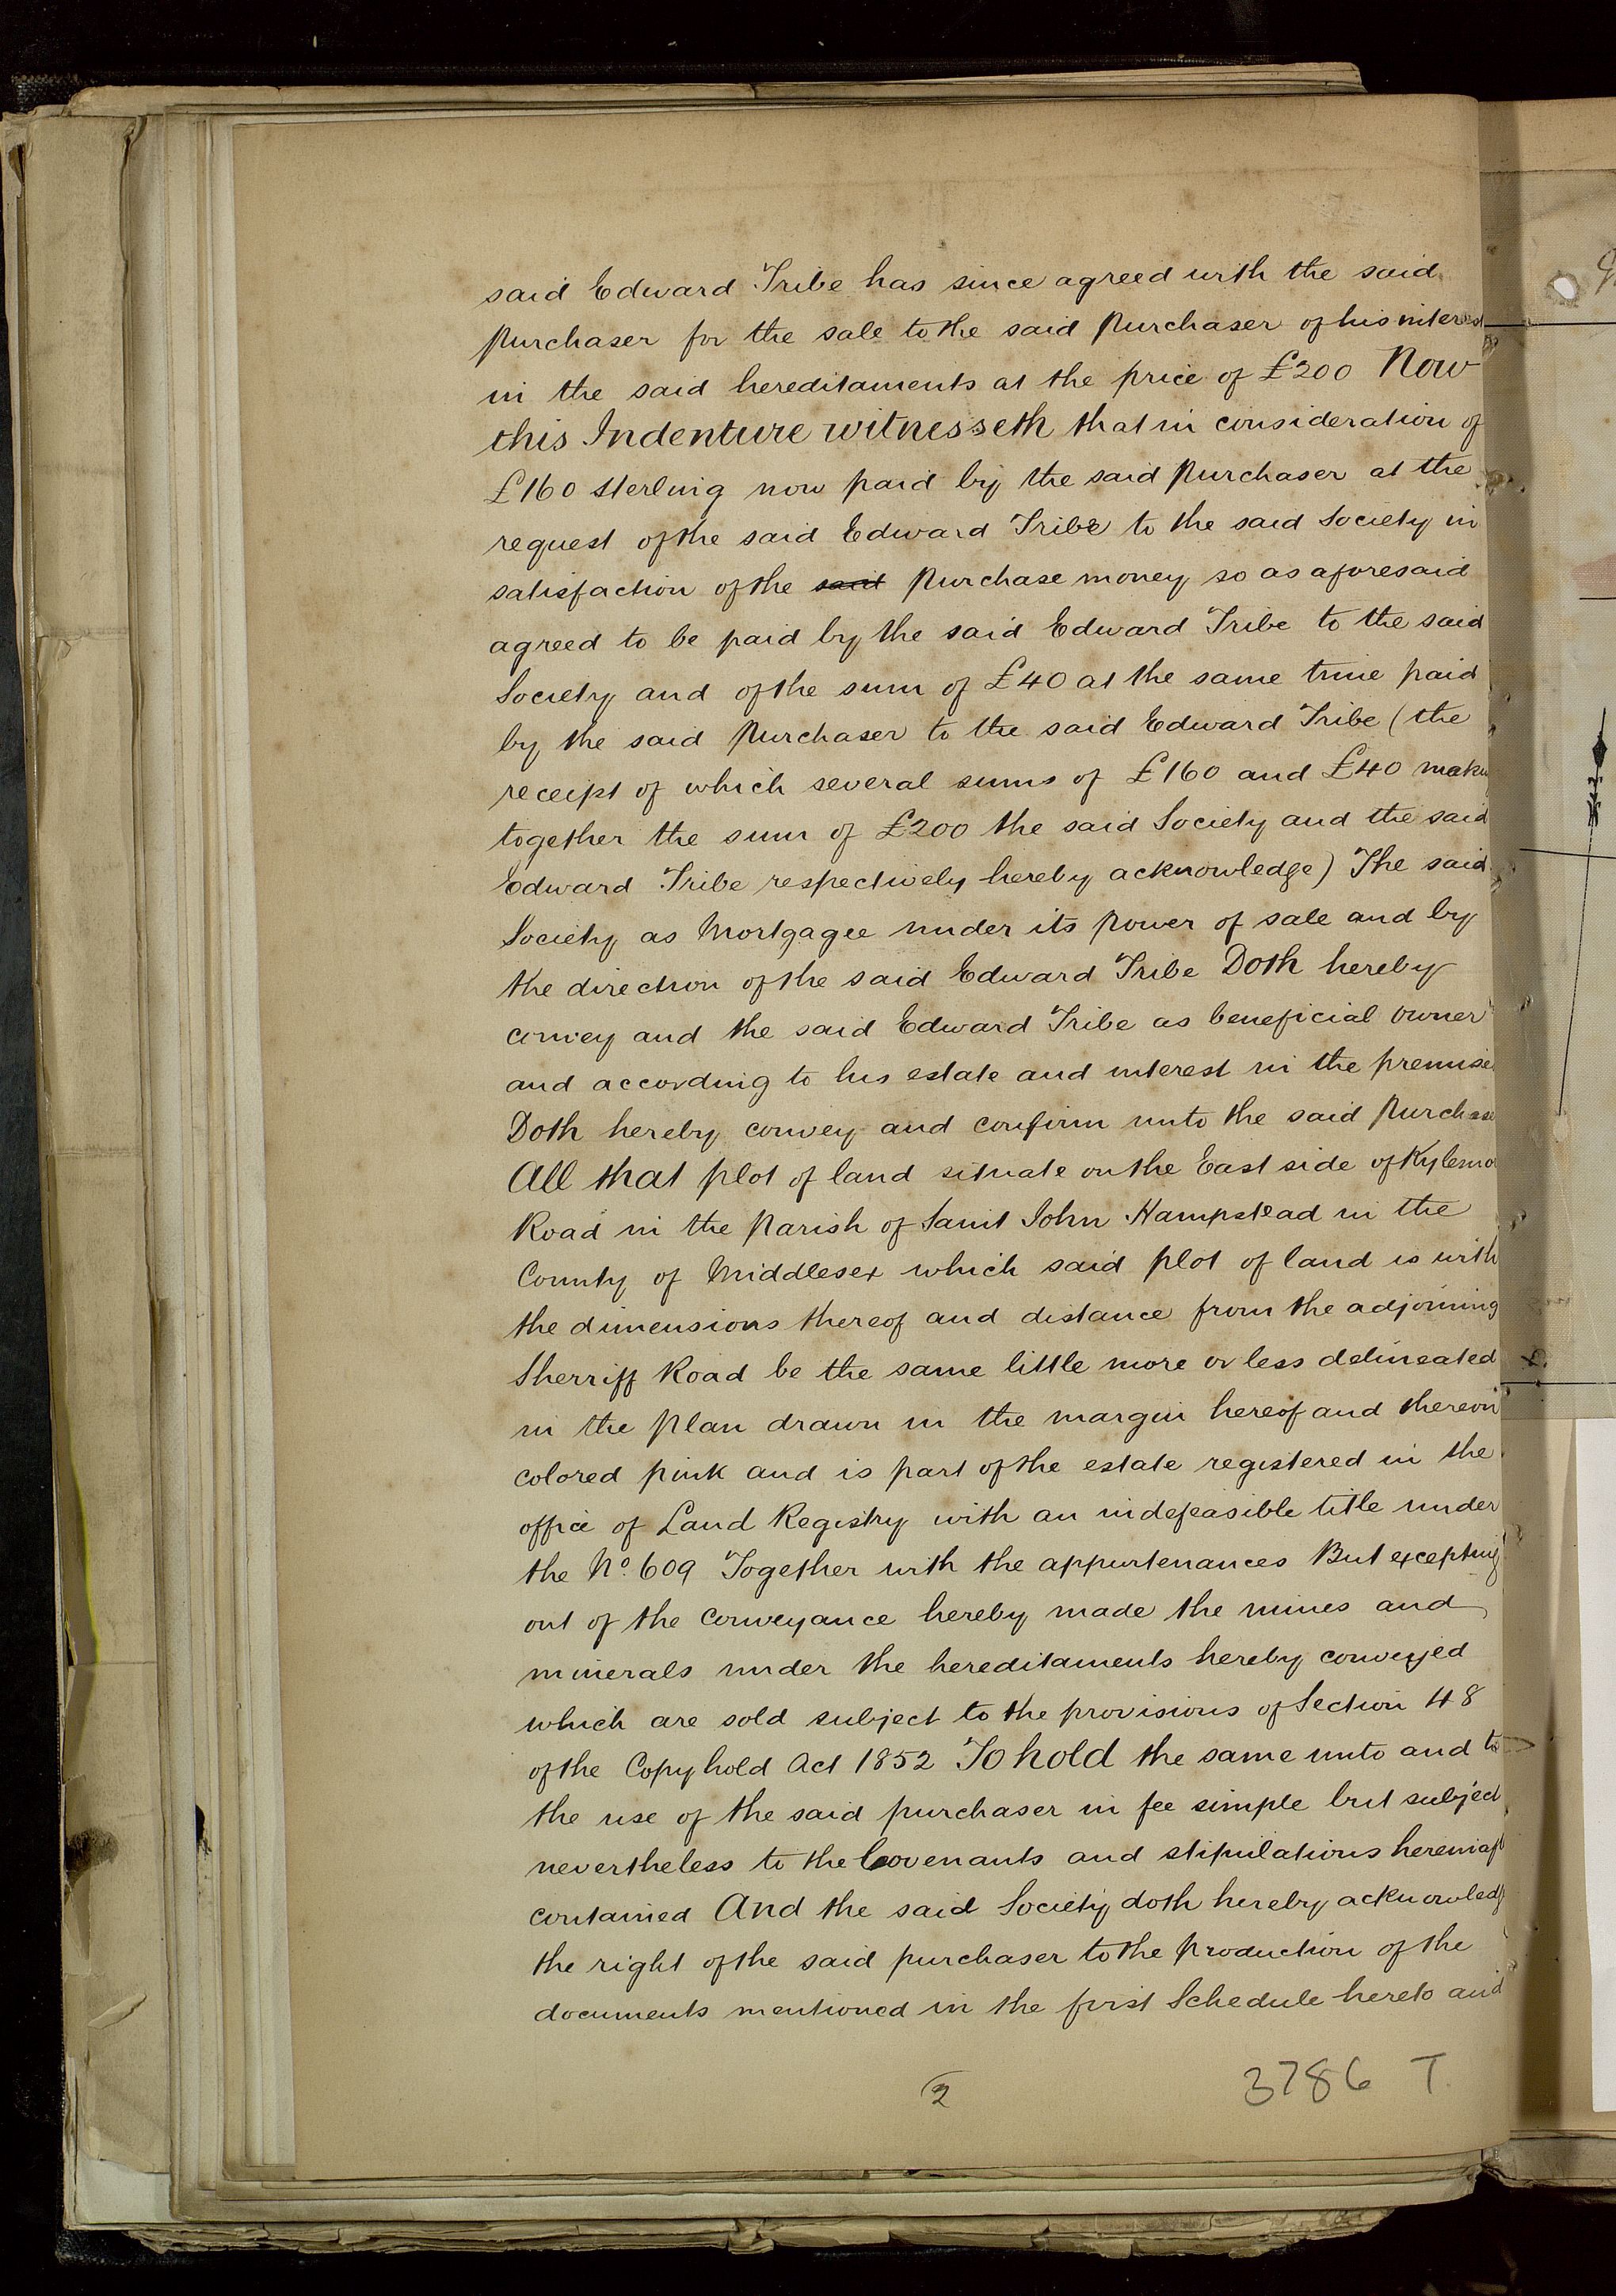 said Edward Tribe has since agreed with the said
Purchaser for the sale to the said Purchaser of his interest
in the said hereditaments at the price of £200 Now
this Indenture witnesseth that in consideration of
£160 sterling now paid by the said Purchaser at the
request of the said Edward Tribe to the said Society in
satisfaction of the said Purchase money so as aforesaid
agreed to be paid by the said Edward Tribe to the said
Society and of the sum of £40 at the same time paid
by the said Purchaser to the said Edward Tribe (the
receipt of which several sums of £160 and £40 makin
together the sum of £200 the said Society and the said
Edward Tribe respectively hereby acknowledge) The said
Society as Mortgagee under its power of sale and by
the direction of the said Edward Tribe Doth hereby
convey and the said Edward Tribe as beneficial owner
and according to his estate and interest in the premise
Doth hereby convey and confirm unto the said Purchase
All that plot of land situate on the East side of Kylemo
Road in the Parish of Saint John Hampstead in the
County of Middlesex which said plot of land is with
the dimensions thereof and distance from the adjoining
Sherriff Road be the same little more or less delineated
in the Plan drawn in the margin hereof and thereon
colored pink and is part of the estate registered in the
office of Land Registry with an indefeasible title under
the No. 609 Together with the appurtenances But excepting
out of the Conveyance hereby made the mines and
minerals under the hereditaments hereby conveyed
which are sold subject to the provisions of Section 48
of the Copyhold Act 1852 To hold the same unto and to
the use of the said purchaser in fee simple but subject
nevertheless to the Covenants and stipulations hereinaft
contained And the said Society doth hereby acknowledg
the right of the said purchaser to the production of the
documents mentioned in the first Schedule hereto and
2
3786 T.